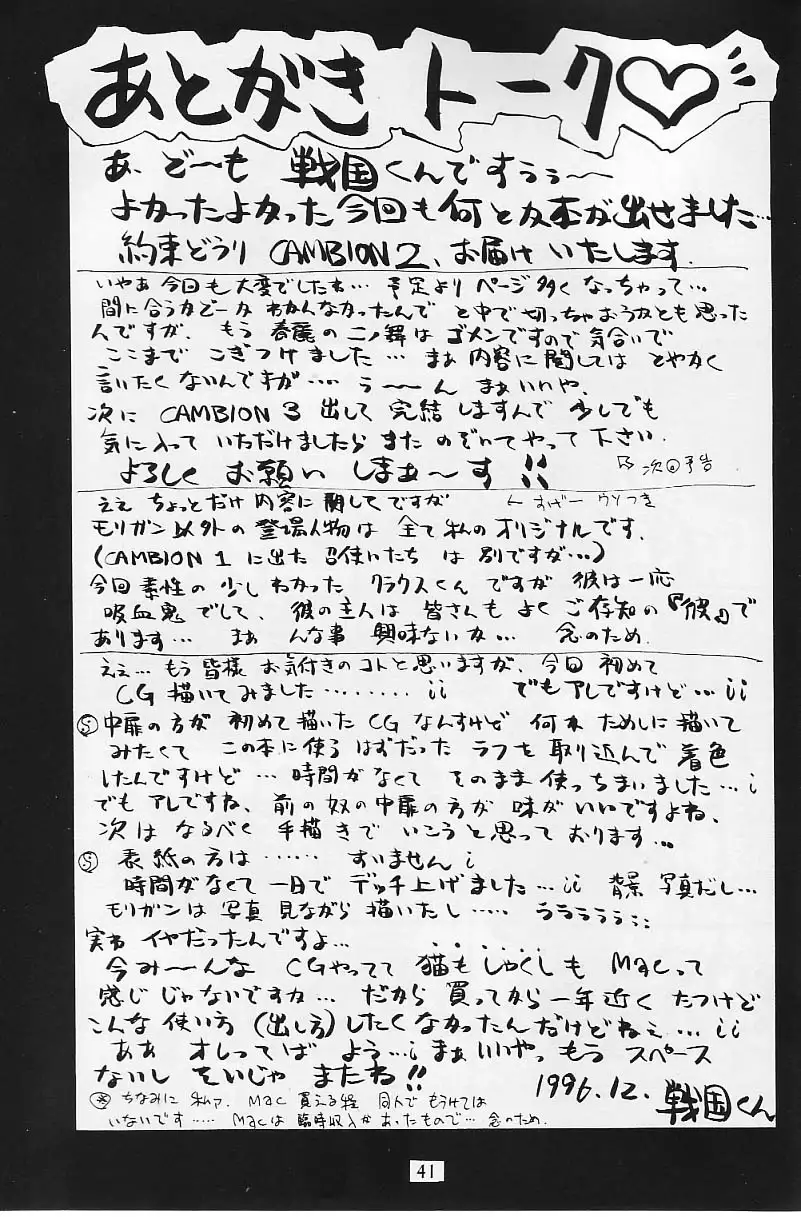 あとがきトーク♡
あ、ど〜も 戦国くんですぅぅ〜
よかったよかった今回も何とか本が出せました…
約束どうり CAMBION 2、お届けいたします.
いやあ今回も大変でしたね… 予定より ページ多くなっちゃって…
間に合うかどーか わかんなかったんで と中で切っちゃおうかとも思った
んですが、もう 春麗の二ノ舞は ゴメンですので気合いで
ここまで こぎつけました… まぁ内容に関しては とやかく
言いたくないんですが…. う〜〜ん まぁいいや、
次に CAMBION 3 出して 完結しますんで 少しでも
気に入って いただけましたら また のぞいてやって下さい.
よろしく お願いしまぁ〜す!!
次回予告
ええ ちょっとだけ内容に関してですが
← すげー ウソつき
モリガン以外の登場人物は 全て私のオリジナルです.
(CAMBION 1 に出た 召使いたち は 別ですが…)
今回素性の 少しわかった クラウスくん ですが 彼は一応
吸血鬼でして、彼の主人は 皆さんも よくご存知の『彼』で
あります… まぁ んな事 興味ないか… 念のため.
ええ… もう皆様 お気付きのコトと思いますが、今回 初めて
CG 描いてみました……… ¡¡ でもアレですけど…¡¡
⑤中扉の方が 初めて描いた CG なんすけど 何か ためしに描いて
みたくて この本に使う はずだった ラフを取り込んで 着色
したんですけど… 時間がなくて そのまま使っちまいました…¡
でも アレですね、前の奴の中扉の方が 味がいいですよね、
次は なるべく 手描きで いこうと思っております…
⑤ 表紙の方は …… すいません¡
時間がなくて 一日で デッチ上げました…¡¡ 背景 写真だし…
モリガンは写真 見ながら 描いたし….. うううううう;;
実わ イヤだったんですよ…
今み〜んな CGやってて 猫も しゃくしも Macって
感じじゃないですか… だから 買ってから一年近く たつけど
こんな使い方 (出し方) したくなかったんだけどねぇ…¡¡
ああ オレってば よう…¡ まぁいいやっ もう スペース
ないし そいじゃ またね!!
1996.12. 戦国くん
※ ちなみに 私ァ、Mac 買える程 同人で もうけては
いないです….. Macは 臨時収入が あったもので… 念のため.
41